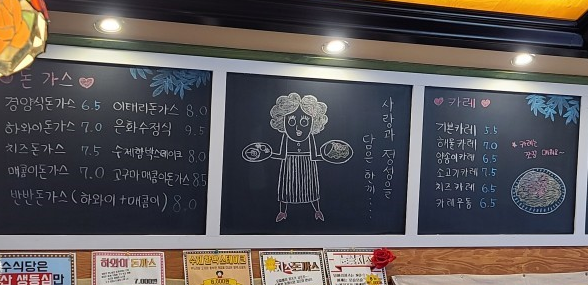 돈 가스
경양식돈가스 6.5 이태리돈가스 8.0
하와이돈가스 7.0 은화수정식 9.5
치즈돈가스 7.5 수제함박스테이크 8.0
매콤이돈가스 7.0 고구마매콤이돈가스 8.5
반반돈가스 (하와이+매콤이) 8.0
사랑과 정성을
담은 한끼...
카레
기본카레 5.5
해물카레 7.0
양송이카레 6.5
소고기카레 7.5
치즈카레 6.5
카레우동 6.5
수식당은
산 생등심만
하와이 돈까스
7,000원
수제함박스테이크
8,000원
치즈돈까스